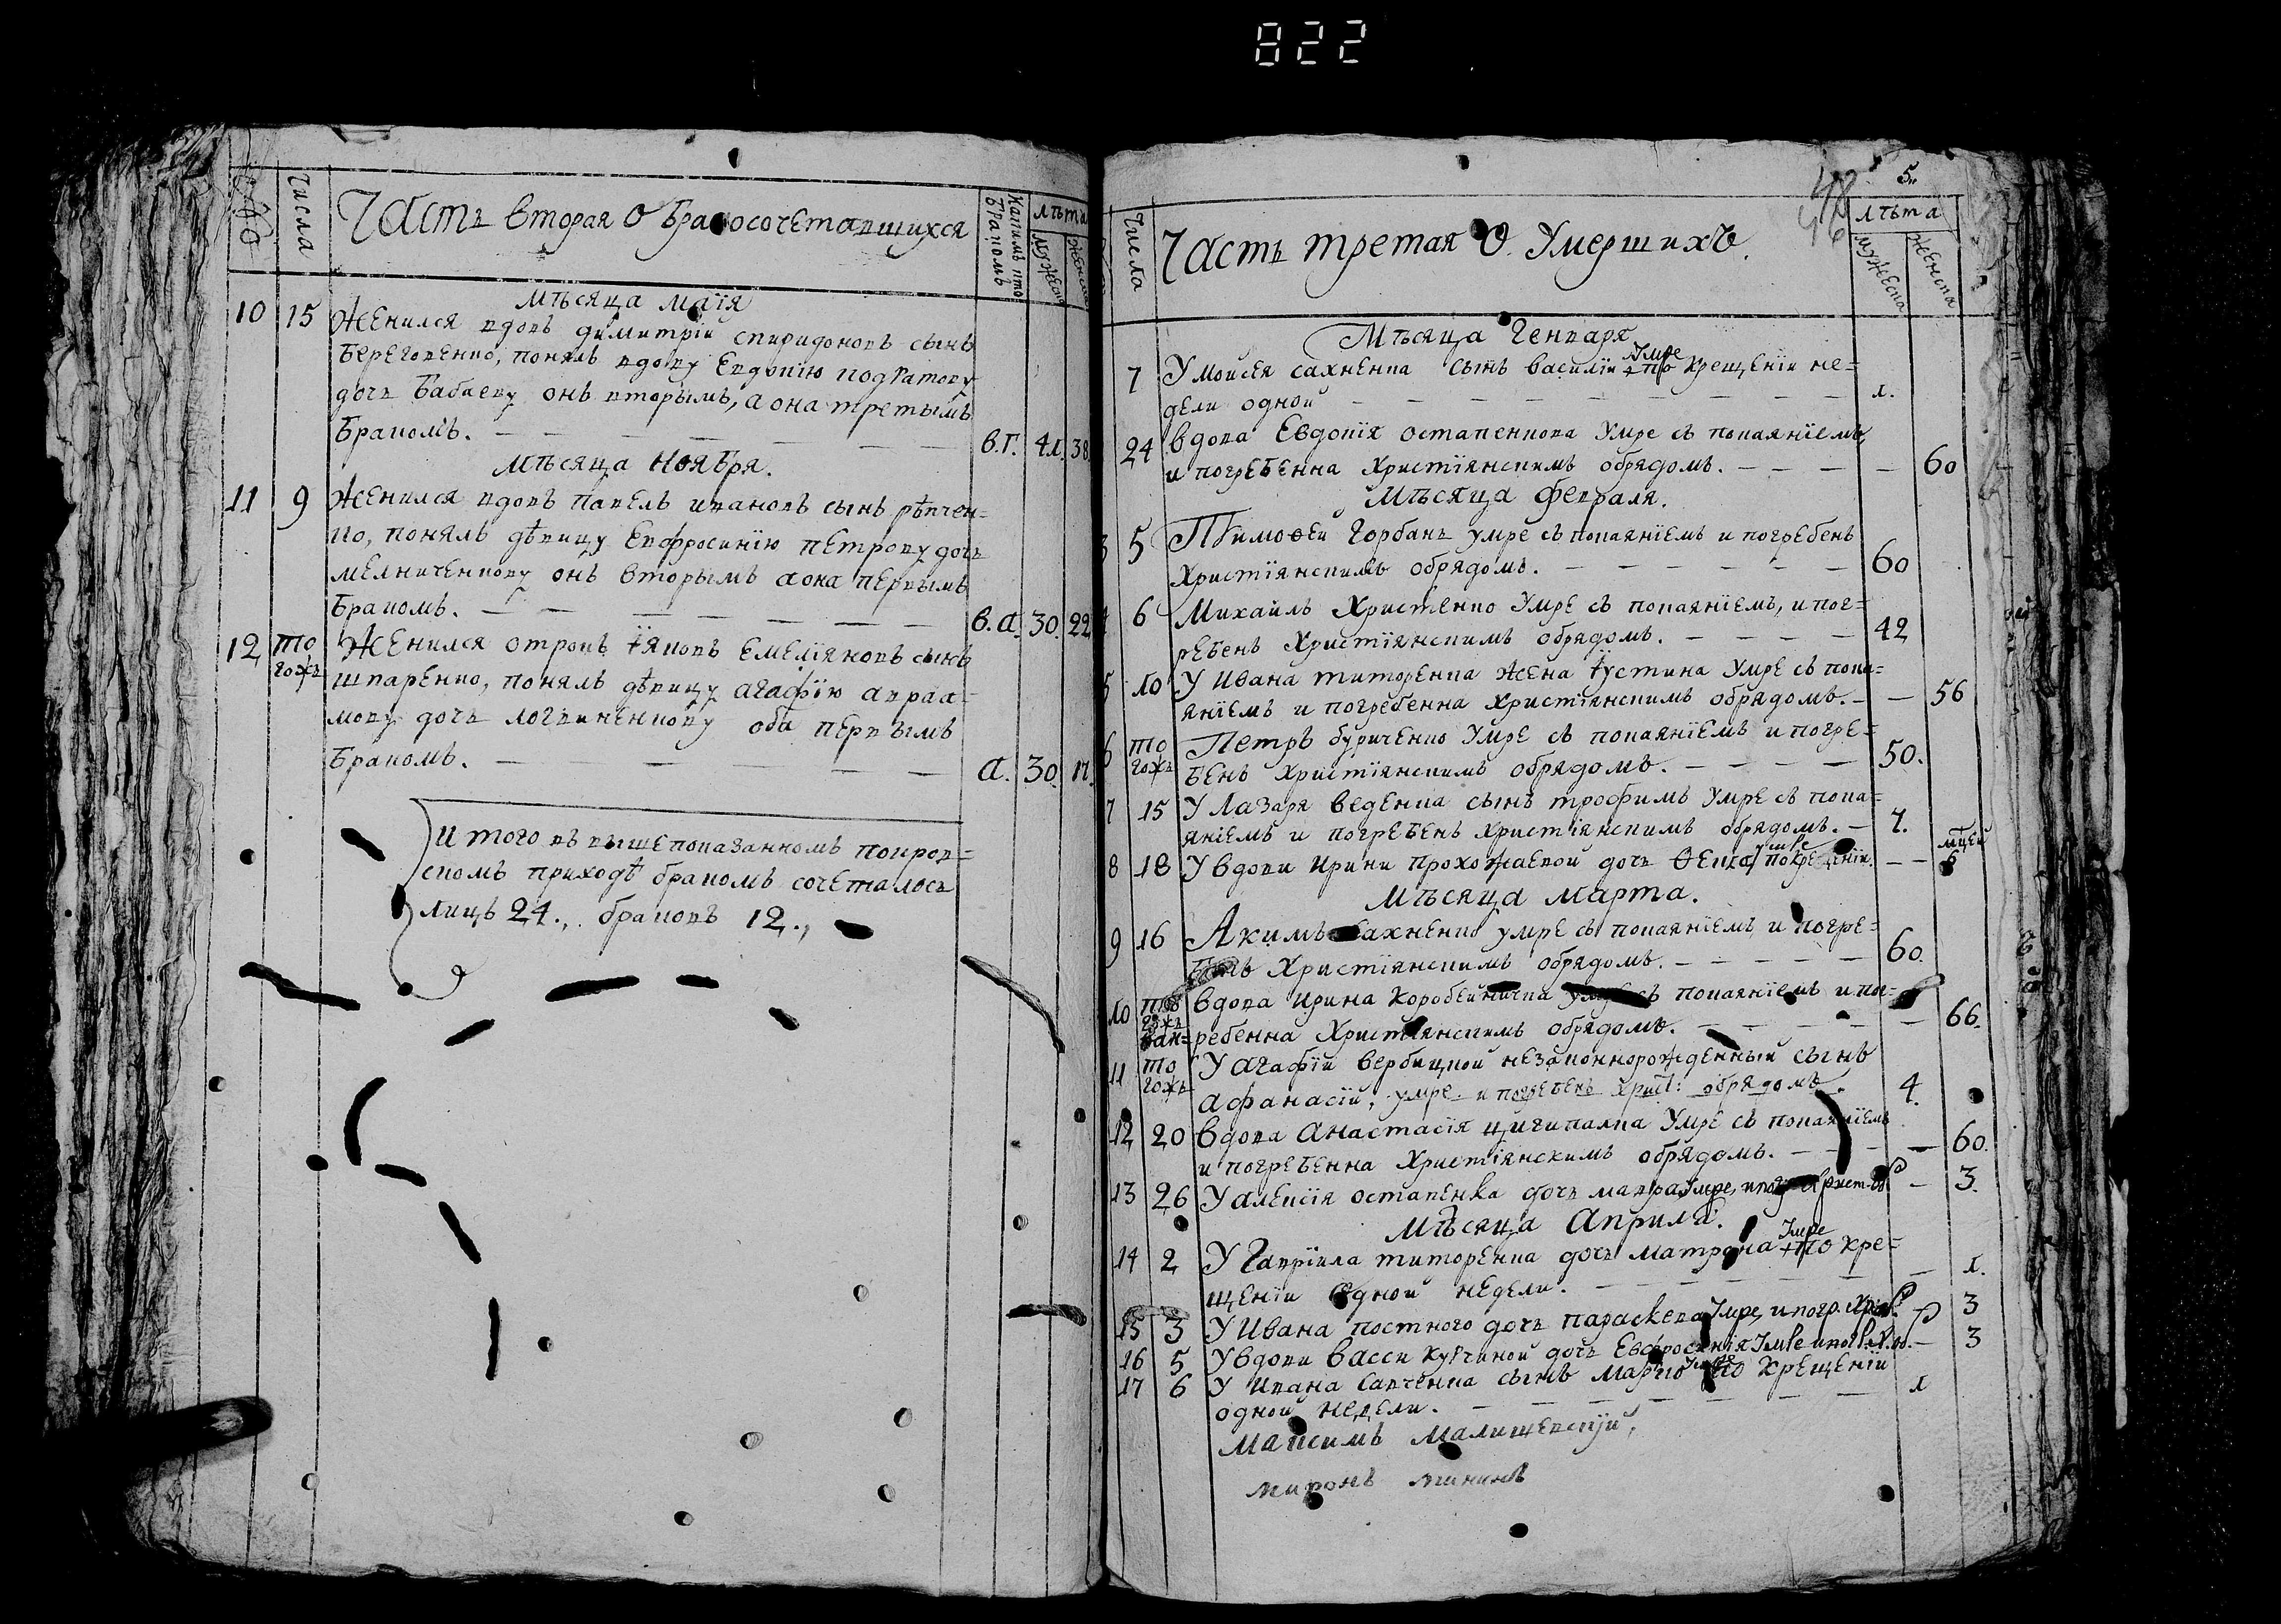 822
Числа
Часть вторая О бракосочетавшихся
Которымъ
бракомъ
лѣта
мужеска
женска
Мѣсяца маїя
10 15 Женился вдовъ димитрїи спиридоновъ сынъ
Береговенко, понялъ вдову Евдокїю
дочь Бабаеву онъ вторымъ, а она третьимъ
Бракомъ. в.г. 41. 38.
Мѣсяца Ноября.
11 9 Женился вдовъ павелъ ивановъ сынъ рѣпчен=
ко, понялъ дѣвицу Евфросинїю петрову дочь
мелниченкову онъ вторымъ а она первымъ
Бракомъ. в.а. 30. 22
12 то
гожъ Женился отрокъ їяковъ Емелїяновъ сынъ
шпаренко, понялъ дѣвицу агафїю авраа=
мову дочь логвиненкову оба первымъ
Бракомъ. а. 30. 17.
И того въ вышепоказанномъ покров=
скомъ приходѣ бракомъ сочеталось
лицъ 24., браковъ 12.,
5.
Числа
Часть третая О Умершихъ.
лѣта
мужеска
женска
Мѣсяца Генваря
7 У моисея сахненка сынъ василїи умре по крещенїи не=
дели одной 1.
24 вдова Евдокїя остапенкова умре съ покаянїемъ
и погребенна христїянскимъ обрядомъ. 60
Мѣсяца февраля.
5 Тимоѳей Горбань умре съ покаянїемъ и погребенъ
христїянскимъ обрядомъ. 60
6 Михаилъ Христенко умре съ покаянїемъ, и пог=
ребенъ Христїянскимъ обрядомъ. 42
5 10 У ивана титоренка жена їустина умре съ пока=
янїемъ и погребенна христїянскимъ обрядомъ. 56
6 то
гожъ Петръ буриченко умре съ покаянїемъ и погре=
бенъ христїянскимъ обрядомъ. 50.
7 15 У Лазаря веденка сынъ трофимъ умре съ пока=
янїемъ и погребенъ христїянскимъ обрядомъ. 7.
8 18 У вдови ирини прохожаевой дочь Ѳекла умре по крещенїи. мцей
6
Мѣсяца марта.
9 16 Акимъ Сахненко умре съ покаянїемъ и погре=
бенъ Христїянскимъ обрядомъ. 60.
10 то
гожъ вдова ирина коробейничка умре съ покаянїемъ и пог=
ребенна Христїянскимъ обрядомъ. 66.
11 то
гожъ У агафїи вербицкой незаконнорожденный сынъ
афанасїи, умре и погребенъ христ: обрядомъ. 4.
12 20 вдова анастасїя цигикалка умре съ покаянїемъ
и погребенна христїянскимъ обрядомъ. 60.
13 26 У алексїя остапенка дочь мавра умре, и погр христ. об 3.
Мѣсяца Априля.
14 2 У Гаврїила титоренка дочь матрона умре по кре=
щенїи едной недели. 1.
15 3 У ивана постного дочь параскева умре, и погр. Хрїс 3
16 5 У вдови васси курчиной дочь Евфросинїя умре и погр. х. об. 3
17 6 У ивана савченка сынъ марко умре по крещенїи
одной недели. 1
Максимъ Малишевскїй,
миронъ мининъ